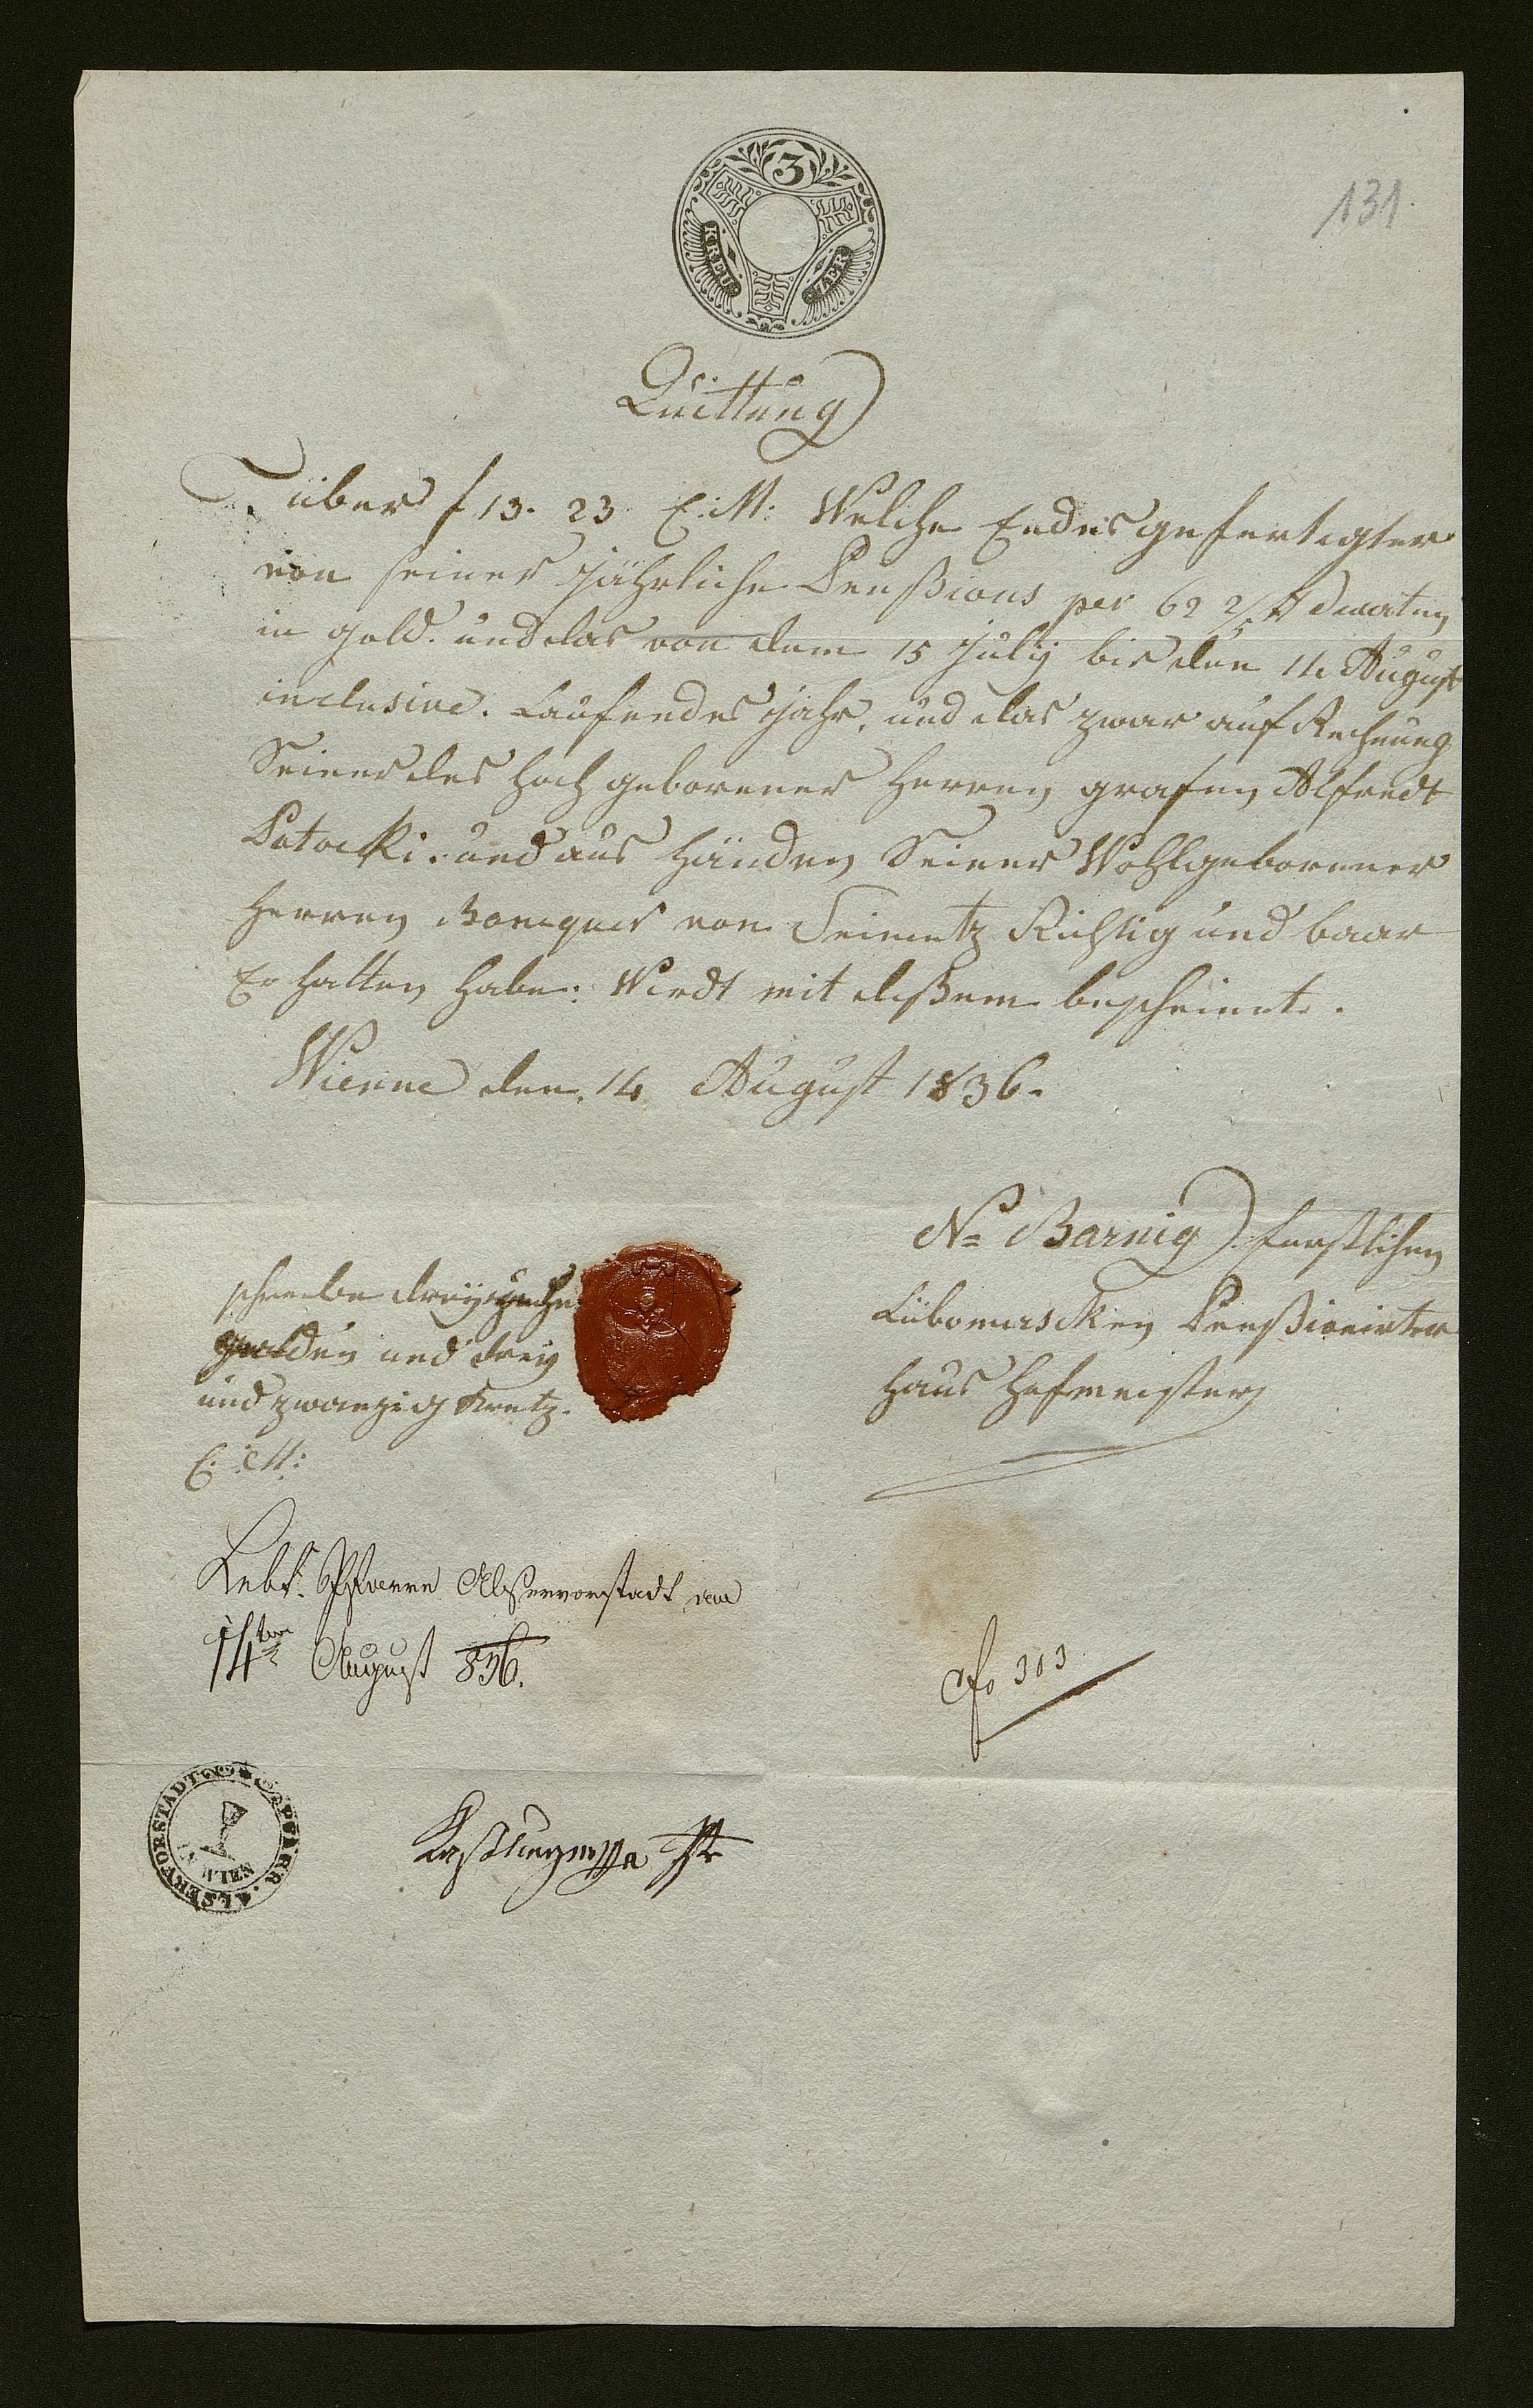 3
KREU
ZER
131
Quittung
über f 13. 23 C: M: Welche Endesgefertigter
von seiner jährliche Penßions per 62 2/4 # Ducaten
in gold. und das von dem 15 July bis den 14 August
inclusive. Laufendes Jahr, und das zwar auf Rechnung
Seiner des hoch geborener Herren grafen Alfredt
Potocki. und aus Händen Seiner Wohlgeborener
Herren Banquer von Steinetz Richtig und baar
Erhalten habe: Wirdt mit dießem bescheinet.
Wienne den 14 August 1836.
N= Barnig furstlichen
Lubomirscken Penßionirter
Haus Hofmeister
schreibe dreyzehn
gulden und drey
und zwanzig Kretz.
C: M:
Lebt. Pfarre Alservorstadt am
14ten August 836.
fo 303
PFARR. ALSERVORSTADT
IN WIEN